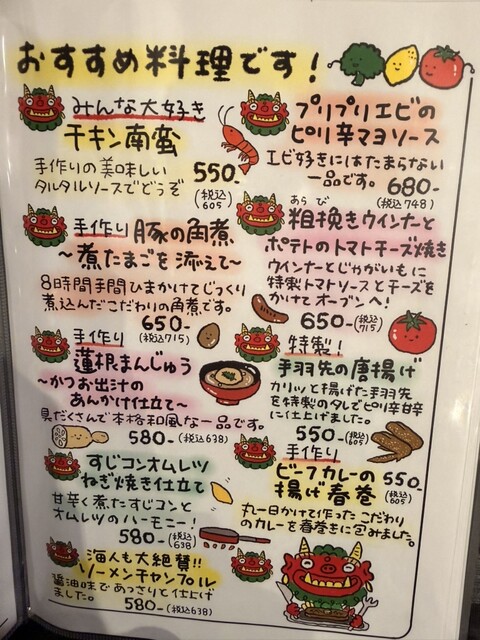 おすすめ料理です!
みんな大好き
チキン南蛮
手作りの美味しい
タルタルソースでどうぞ
550-
(税込605)
手作り 豚の角煮
～煮たまごを添えて～
8時間手間ひまかけてじっくり
煮込んだこだわりの角煮です。
650-
(税込715)
手作り
蓮根まんじゅう
～かつお出汁の
あんかけ仕立て～
具だくさんで本格和風な一品です。
580-(税込638)
すじコンオムレツ
ねぎ焼き仕立て
甘辛く煮たすじコンと
オムレツのハーモニー!
580-(税込638)
海人も大絶賛!!
ソーメンチャンプル
醤油味であっさりと仕上げ
ました。
580-(税込638)
プリプリエビの
ピリ辛マヨソース
エビ好きにはたまらない
一品です。 680-
(税込748)
あらび
粗挽きウインナーと
ポテトのトマトチーズ焼き
ウインナーとじゃがいもに
特製トマトソースとチーズを
かけてオーブンへ!
650-(税込715)
特製!
手羽先の唐揚げ
カリッと揚げた手羽先
を特製のタレでピリ辛甘辛
に仕上げました。
550-(税込605)
手作り
ビーフカレーの
揚げ春巻
550-
(税込605)
丸一日かけて作ったこだわり
のカレーを春巻きに包みました。